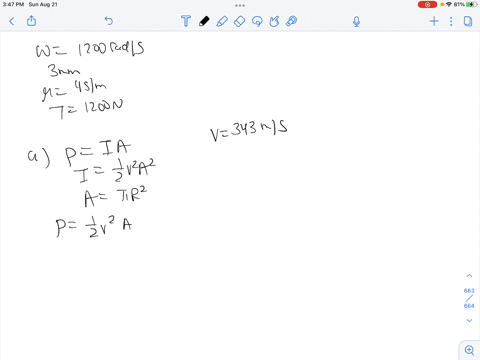 3:47 PM Sun Aug 21
81%
ω = 1200 rad/s
3mm
μ = 4g/m
T = 1200N
V = 343 m/s
a) P = IA
I = 1/2 v² A²
A = πR²
P = 1/2 v² A
663
/
664